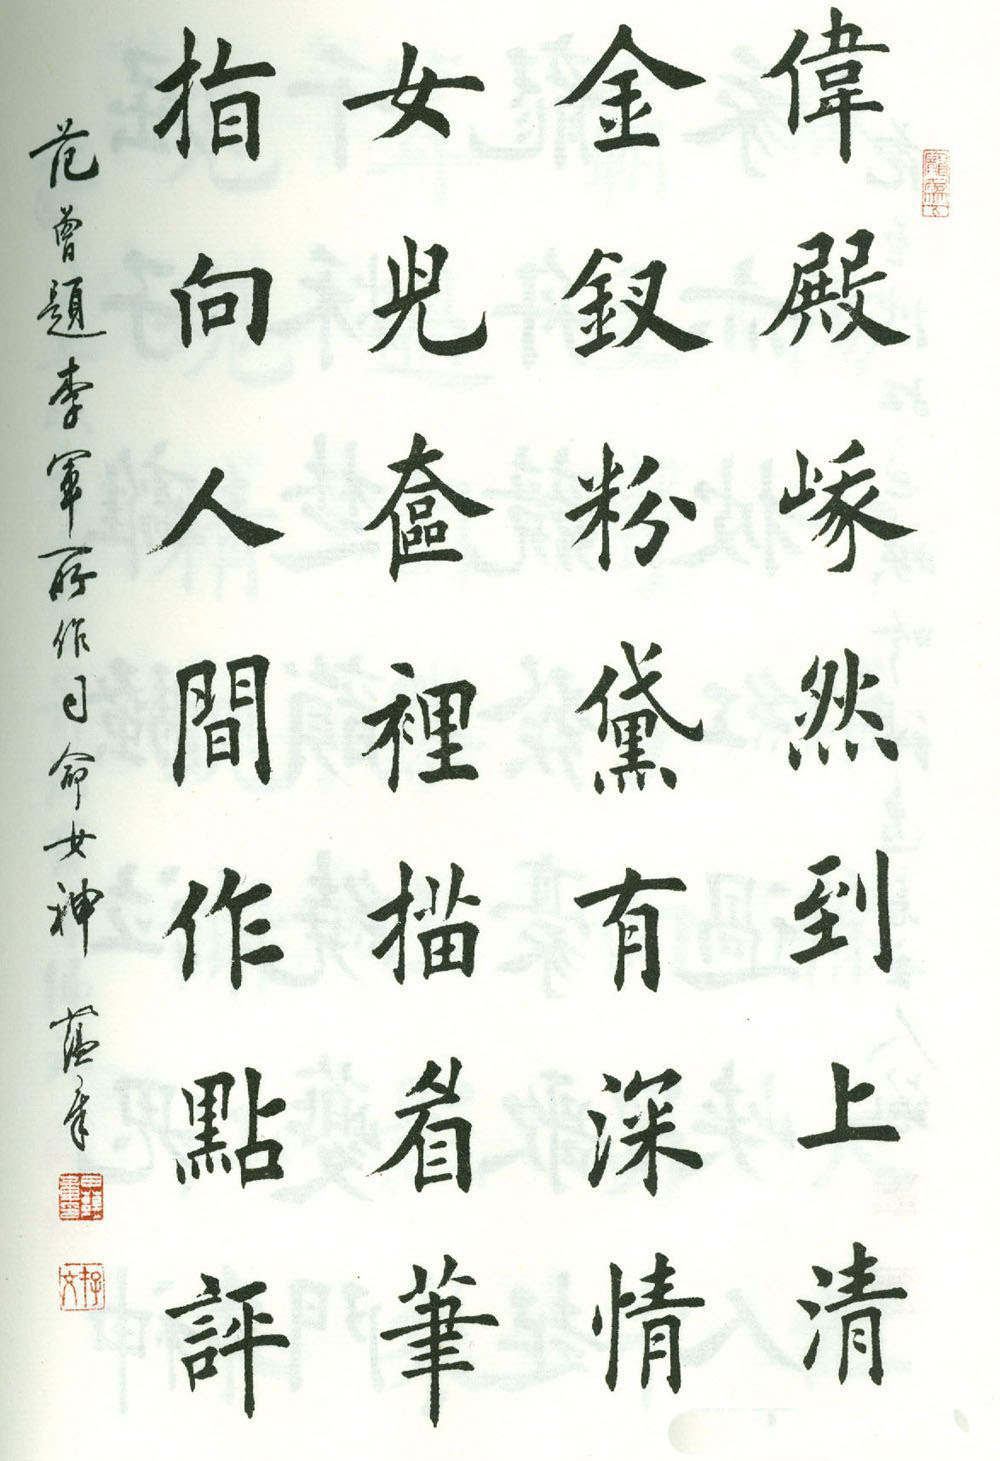 偉殿峩然到上清
金釵粉黛有深情
女兒奩裡描眉筆
指向人間作點評
范曾題李軍所作司命女神 蘊章